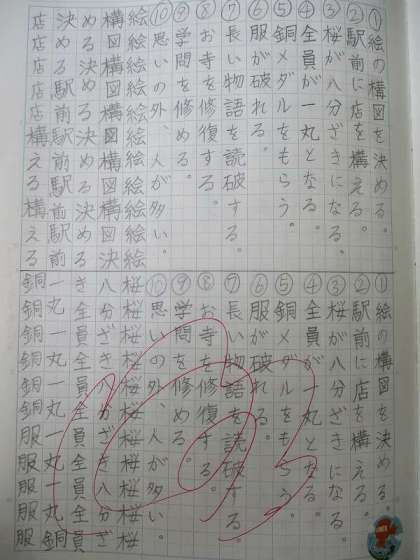 ①絵の構図を決める。
②駅前に店を構える。
③桜が八分ざきになる。
④全員が一丸となる。
⑤銅メダルをもらう。
⑥服が破れる。
⑦長い物語を読破する。
⑧お寺を修復する。
⑨学問を修める。
⑩思いの外、人が多い。
絵絵絵絵絵絵絵絵絵絵絵
構図構図構図構図構図決
める決める決める決める
決める駅前駅前駅前駅前
店店店店店構える構える
①絵の構図を決める。
②駅前に店を構える。
③桜が八分ざきになる。
④全員が一丸となる。
⑤銅メダルをもらう。
⑥服が破れる。
⑦長い物語を読破する。
⑧お寺を修復する。
⑨学問を修める。
⑩思いの外、人が多い。
桜桜桜桜桜桜桜桜桜桜桜
八分ざき八分ざき八分ざ
き全員全員全員全員全員
一丸一丸一丸一丸一丸銅
銅銅銅銅銅銅服服服服服